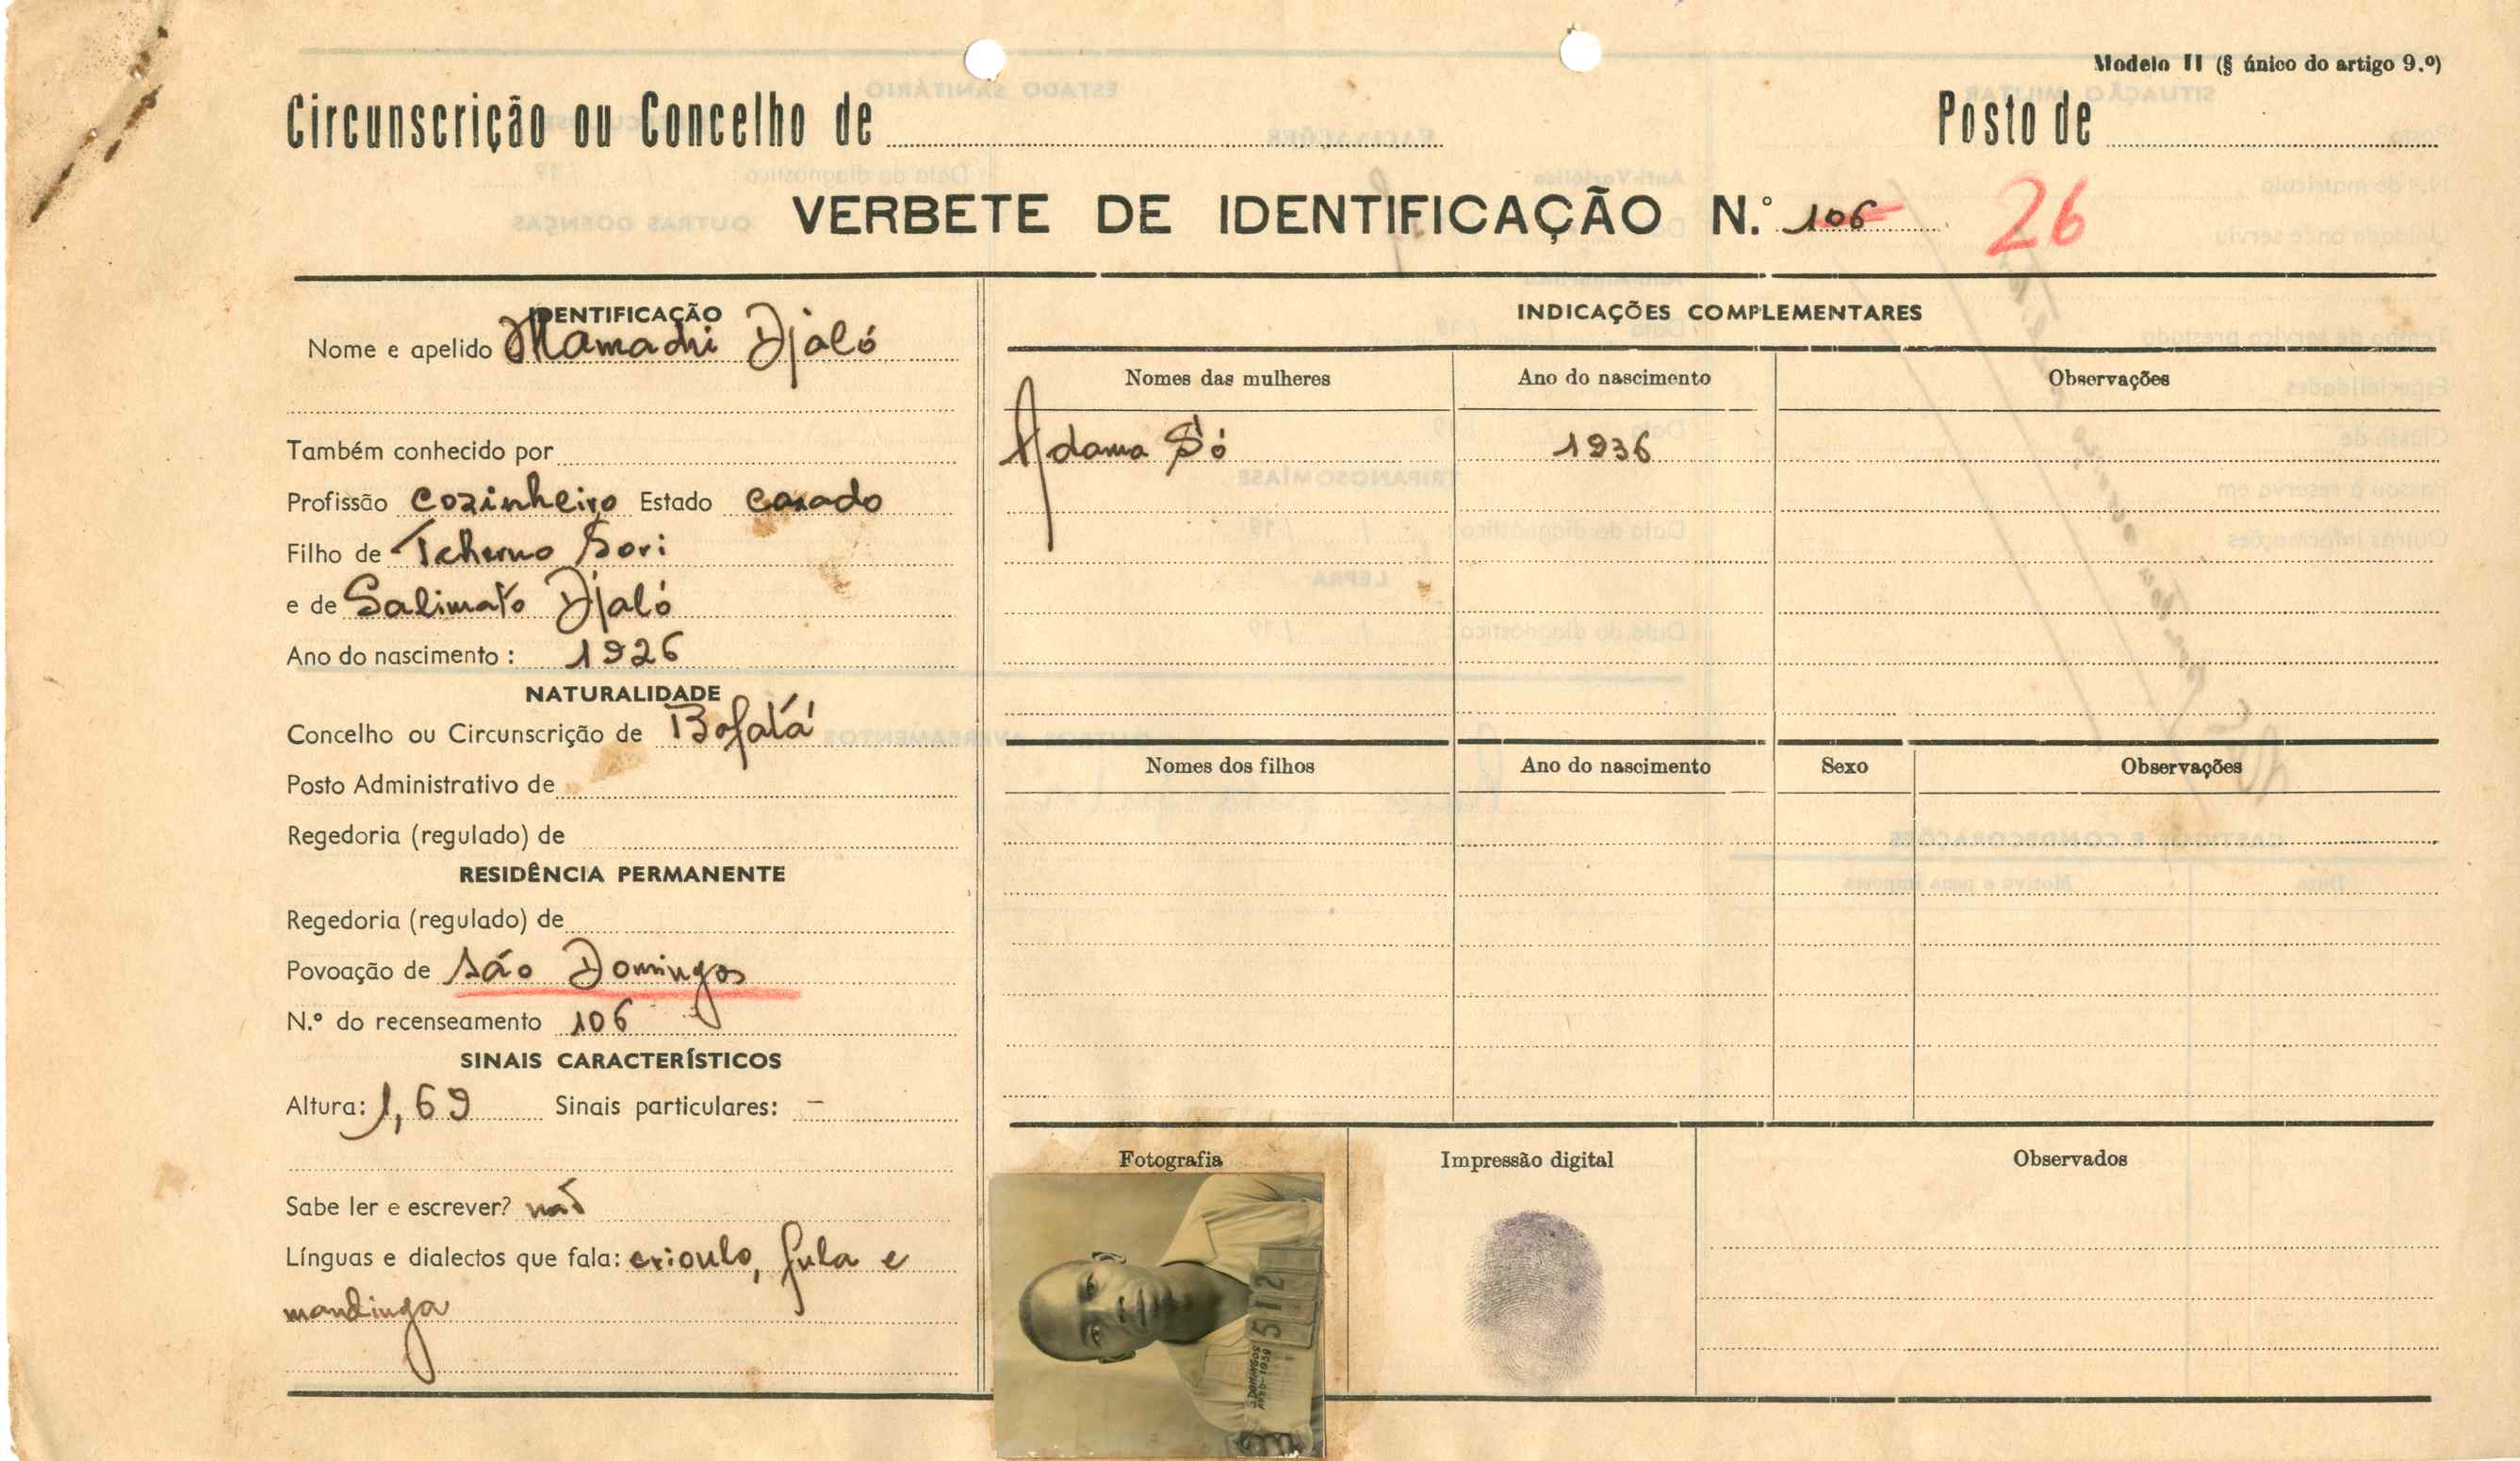 Modelo II (§ único do artigo 9.º)
Circunscrição ou Concelho de
Posto de
VERBETE DE IDENTIFICAÇÃO N.º 106 26
IDENTIFICAÇÃO
Nome e apelido Mamadú Djaló
Também conhecido por
Profissão cozinheiro Estado casado
Filho de Tcherno Sori
e de Salimato Djaló
Ano do nascimento: 1926
NATURALIDADE
Concelho ou Circunscrição de Bafatá
Posto Administrativo de
Regedoria (regulado) de
RESIDÊNCIA PERMANENTE
Regedoria (regulado) de
Povoação de São Domingos
N.º do recenseamento 106
SINAIS CARACTERÍSTICOS
Altura: 1,69 Sinais particulares: –
Sabe ler e escrever? não
Línguas e dialectos que fala: crioulo, fula e
mandinga
INDICAÇÕES COMPLEMENTARES
Nomes das mulheres Ano do nascimento Observações
Adama Só 1936
Nomes dos filhos Ano do nascimento Sexo Observações
Fotografia Impressão digital Observados
512
S. DOMINGOS
ANO-1959